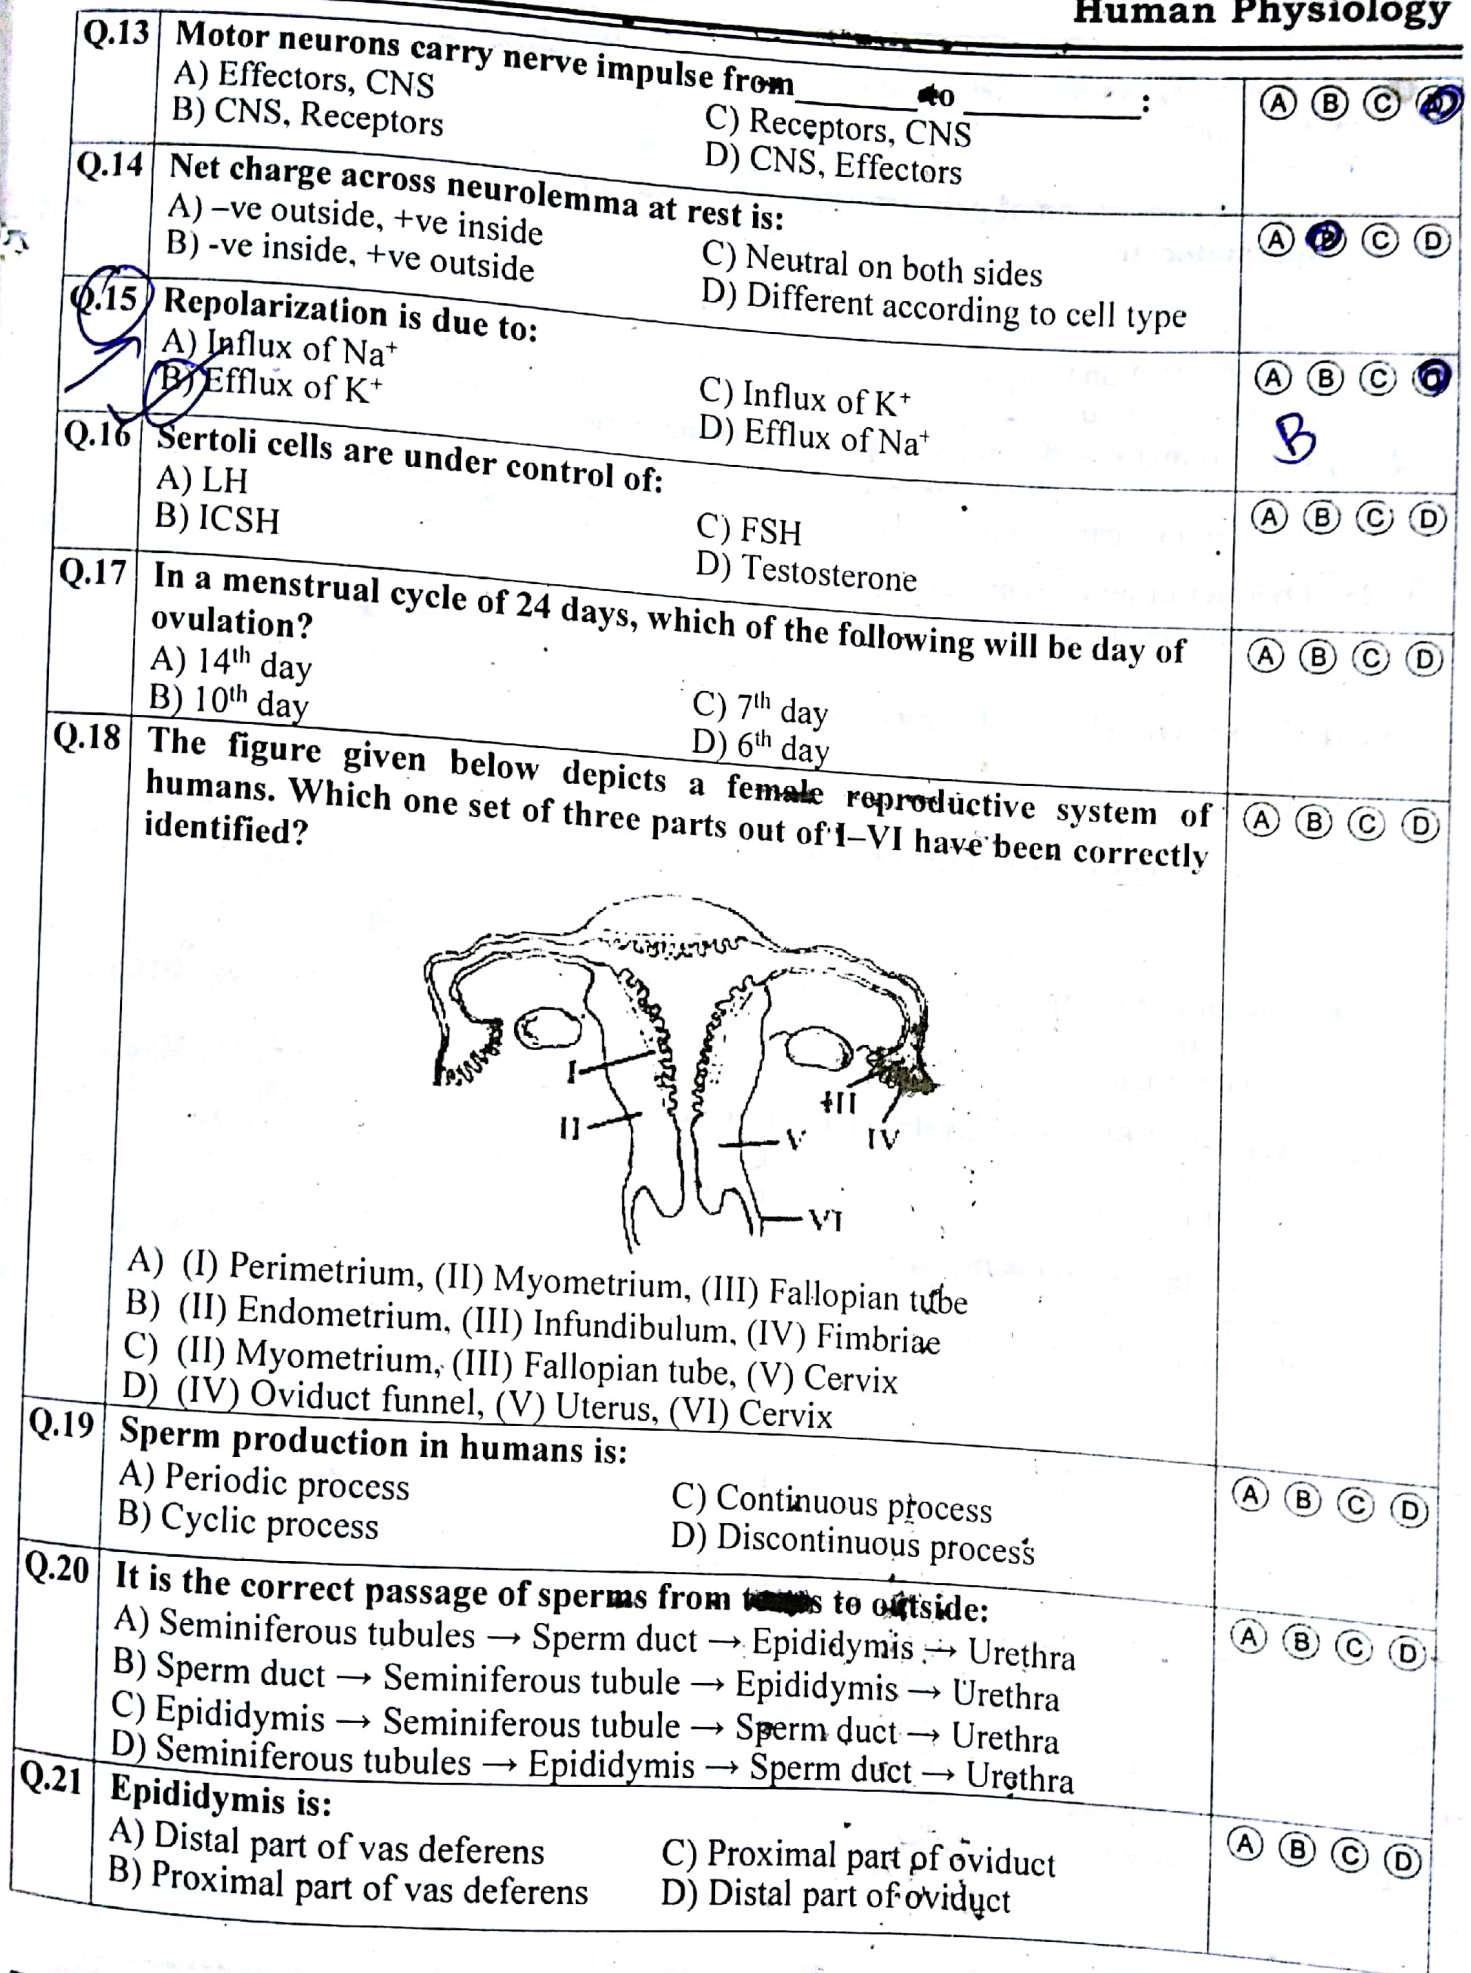 Human Physiology
Q.13 Motor neurons carry nerve impulse from_______to __________:
A) Effectors, CNS
B) CNS, Receptors
C) Receptors, CNS
D) CNS, Effectors
A B C
Q.14 Net charge across neurolemma at rest is:
A) –ve outside, +ve inside
B) -ve inside, +ve outside
C) Neutral on both sides
D) Different according to cell type
A B C D
Q.15 Repolarization is due to:
A) Influx of Na⁺
B) Efflux of K⁺
C) Influx of K⁺
D) Efflux of Na⁺
A B C
B
Q.16 Sertoli cells are under control of:
A) LH
B) ICSH
C) FSH
D) Testosterone
A B C D
Q.17 In a menstrual cycle of 24 days, which of the following will be day of
ovulation?
A) 14th day
B) 10th day
C) 7th day
D) 6th day
A B C D
Q.18 The figure given below depicts a female reproductive system of
humans. Which one set of three parts out of I–VI have been correctly
identified?
A B C D
I
II
III
IV
V
VI
A) (I) Perimetrium, (II) Myometrium, (III) Fallopian tube
B) (II) Endometrium, (III) Infundibulum, (IV) Fimbriae
C) (II) Myometrium, (III) Fallopian tube, (V) Cervix
D) (IV) Oviduct funnel, (V) Uterus, (VI) Cervix
Q.19 Sperm production in humans is:
A) Periodic process
B) Cyclic process
C) Continuous process
D) Discontinuous process
A B C D
Q.20 It is the correct passage of sperms from to outside:
A) Seminiferous tubules → Sperm duct → Epididymis → Urethra
B) Sperm duct → Seminiferous tubule → Epididymis → Urethra
C) Epididymis → Seminiferous tubule → Sperm duct → Urethra
D) Seminiferous tubules → Epididymis → Sperm duct → Urethra
A B C D
Q.21 Epididymis is:
A) Distal part of vas deferens
B) Proximal part of vas deferens
C) Proximal part of oviduct
D) Distal part of oviduct
A B C D